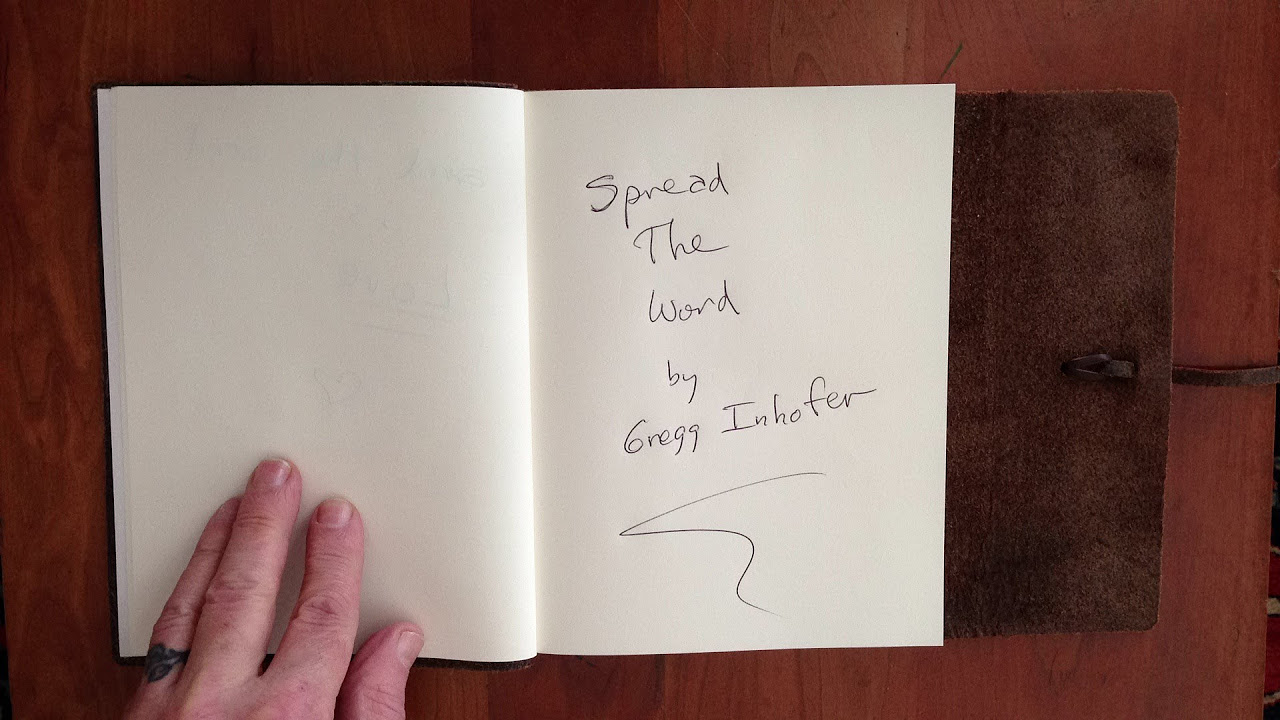 Spread
The
Word
by
Gregg Inhofer